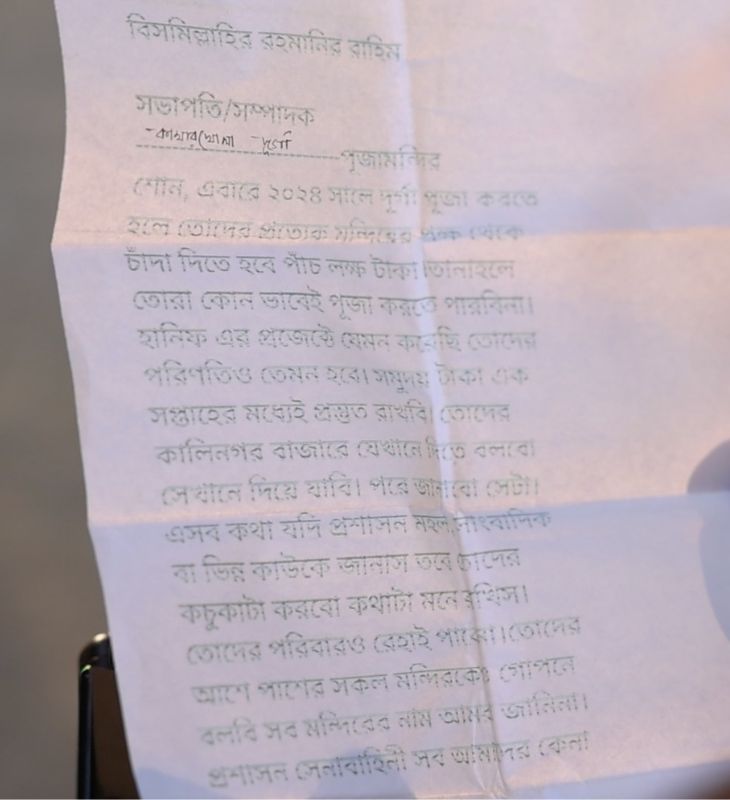 বিসমিল্লাহির রহমানির রাহিম
সভাপতি/সম্পাদক
দুর্গা
পূজামন্দির
শোন, এবারে ২০২৪ সালে দূর্গা পূজা করতে
হলে তোদের প্রত্যেক মন্দিরের পক্ষ থেকে
চাঁদা দিতে হবে পাঁচ লক্ষ টাকা। তানাহলে
তোরা কোন ভাবেই পূজা করতে পারবিনা।
হানিফ এর প্রজেক্টে যেমন করেছি তোদের
পরিণতিও তেমন হবে। সমুদয় টাকা এক
সপ্তাহের মধ্যেই প্রস্তুত রাখবি। তোদের
কালিনগর বাজারে যেখানে দিতে বলবো
সেখানে দিয়ে যাবি। পরে জানাবো সেটা।
এসব কথা যদি প্রশাসন মহল,সাংবাদিক
বা ভিন্ন কাউকে জানাস তবে তোদের
কচুকাটা করবো কথাটা মনে রখিস।
তোদের পরিবারও রেহাই পাবেনা।তোদের
আশে পাশের সকল মন্দিরকে গোপনে
বলবি সব মন্দিরের নাম আমরা জানিনা।
প্রশাসন সেনাবাহিনী সব আমাদের কেনা